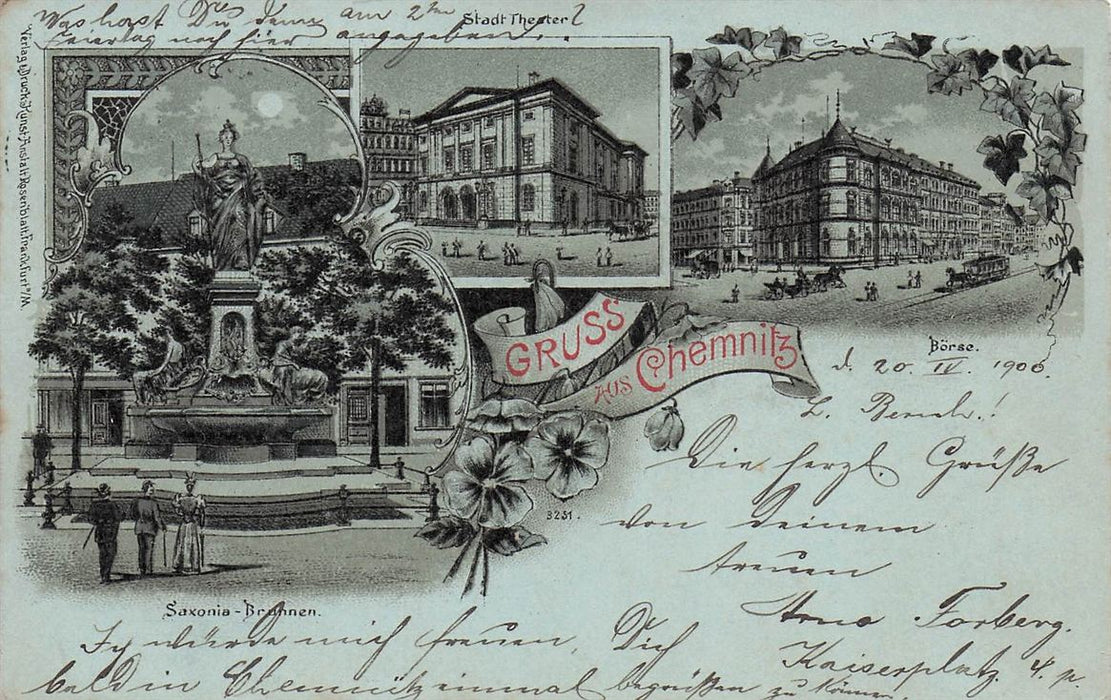 Was hast Du denn am 2ten
Feiertag noch hier angegeben?
Stadt Theater
Verlag & Druck Kunst-Anstalt Rosenblatt, Frankfurt a/M.
GRUSS
AUS Chemnitz
Börse.
d. 20. IV. 1900.
L. !
Die herzl Grüße
von Deinem
treuen
Arno Forberg.
Kaiserplatz 4. p
3231.
Saxonia-Brunnen.
Ich würde mich freuen, Dich
bald in Chemnitz einmal begrüßen zu können.